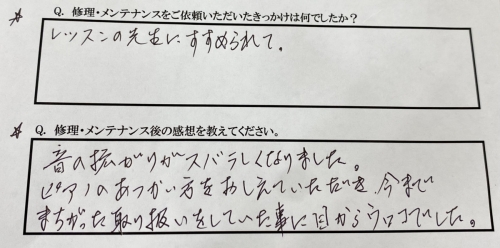 ☆ Q. 修理・メンテナンスをご依頼いただいたきっかけは何でしたか？
レッスンの先生にすすめられて。
☆ Q. 修理・メンテナンス後の感想を教えてください。
音の拡がりがスバラしくなりました。
ピアノのあつかい方をおしえていただき、今まで
まちがった取り扱いをしていた事に目からウロコでした。